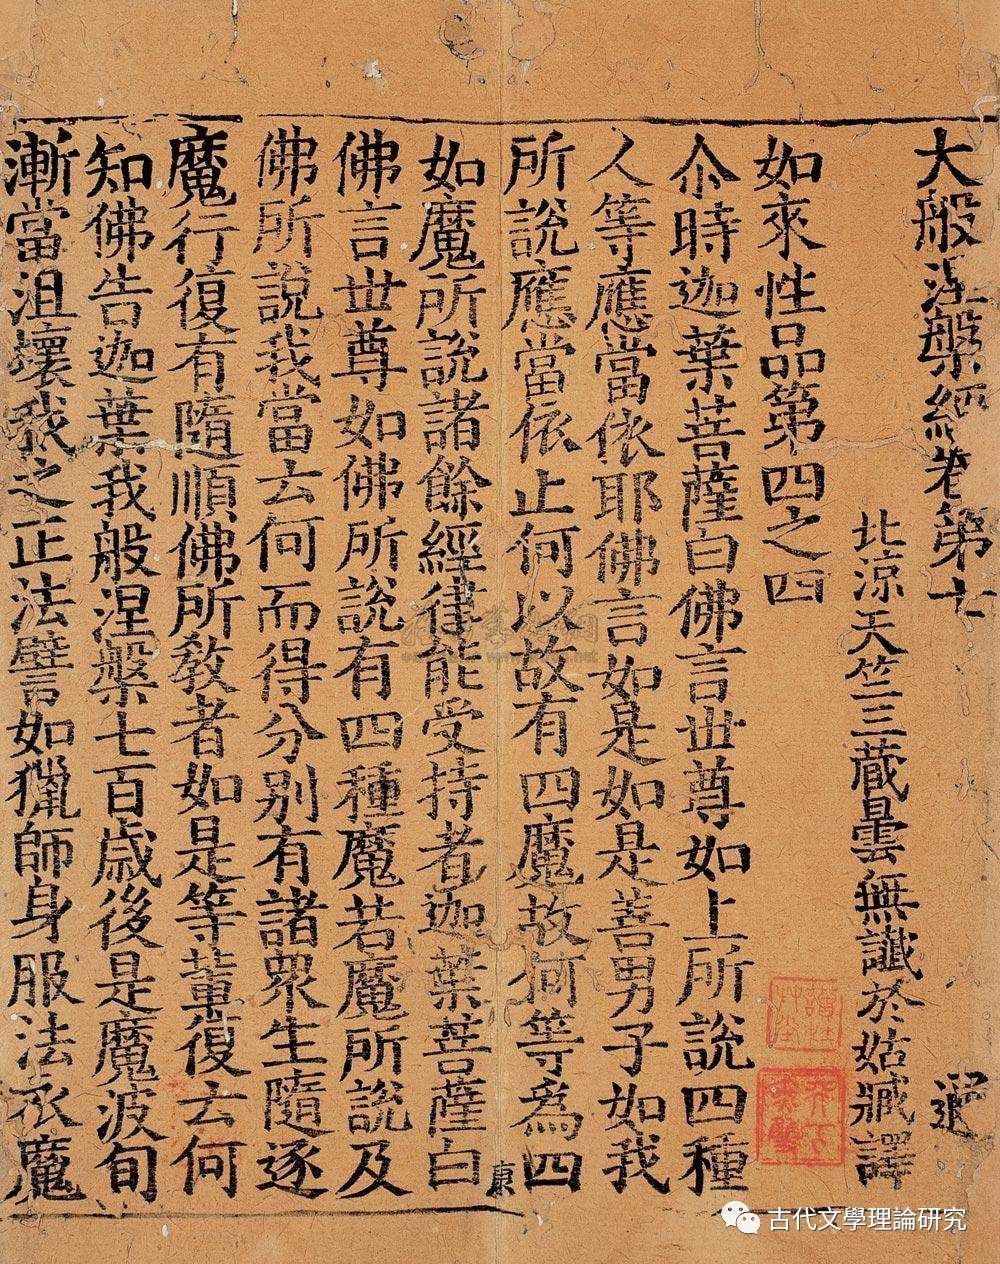 大般涅槃經卷第七 遐
北涼天竺三藏曇無讖於姑臧譯
如來性品第四之四
尒時迦葉菩薩白佛言世尊如上所説四種
人等應當依耶佛言如是如是善男子如我
所説應當依止何以故有四魔故何等爲四
東
如魔所説諸餘經律能受持者迦葉菩薩白
佛言世尊如佛所説有四種魔若魔所説及
佛所説我當云何而得分别有諸衆生隨逐
魔行復有隨順佛所教者如是等輩復云何
知佛告迦葉我般涅槃七百歲後是魔波旬
漸當沮壞我之正法譬如獵師身服法衣魔
古代文學理論研究